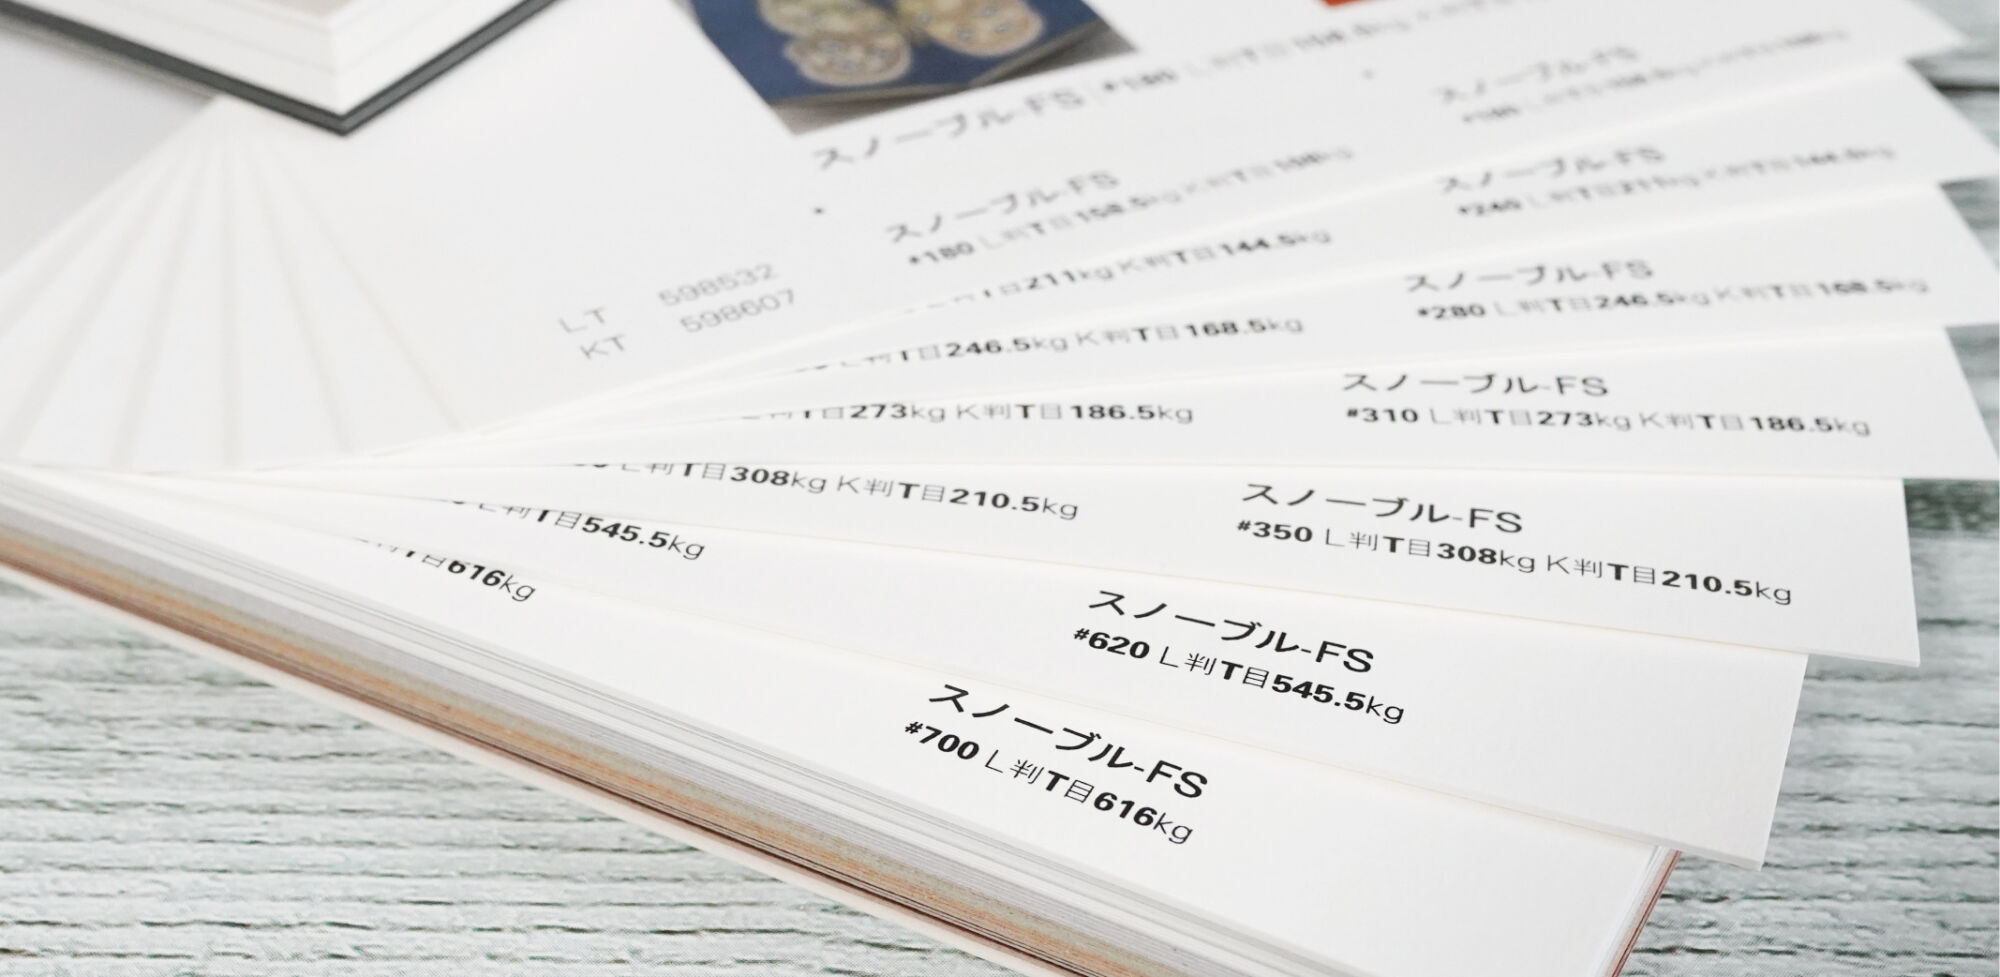 スノーブル-FS #180 L判T目158.5kg
スノーブル-FS
#180 L判T目158.5kg K判T目108kg
LT 598532
KT 598607
スノーブル-FS
スノーブル-FS
#240 L判T目211kg K判T目144.5kg
211kg K判T目144.5kg
スノーブル-FS
#280 L判T目246.5kg K判T目168.5kg
L判T目246.5kg K判T目168.5kg
スノーブル-FS
#310 L判T目273kg K判T目186.5kg
T目273kg K判T目186.5kg
スノーブル-FS
#350 L判T目308kg K判T目210.5kg
L判T目308kg K判T目210.5kg
スノーブル-FS
#620 L判T目545.5kg
L判T目545.5kg
スノーブル-FS
#700 L判T目616kg
判T目616kg